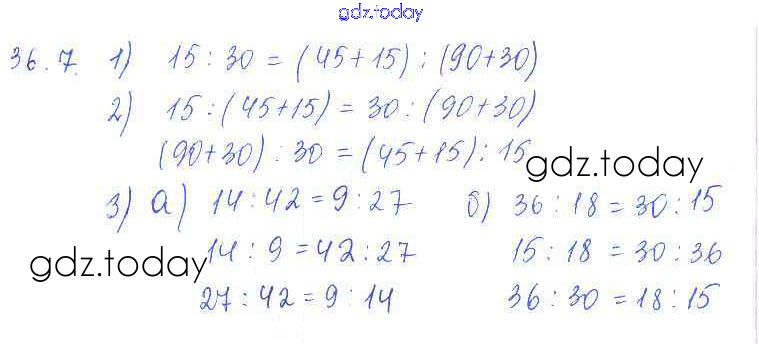 gdz.today
36.7. 1) 15 : 30 = (45+15) : (90+30)
2) 15 : (45+15) = 30 : (90+30)
(90+30) : 30 = (45+15) : 15
gdz.today
3) а) 14 : 42 = 9 : 27 б) 36 : 18 = 30 : 15
14 : 9 = 42 : 27 15 : 18 = 30 : 36
gdz.today
27 : 42 = 9 : 14 36 : 30 = 18 : 15